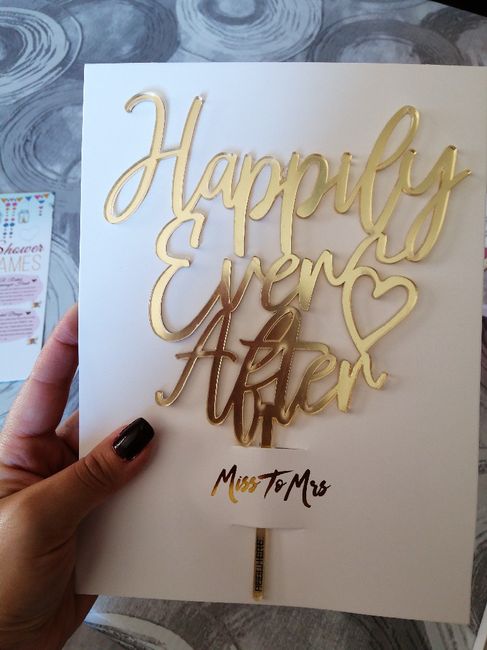 Happily
Ever
After
Miss To Mrs
Shower